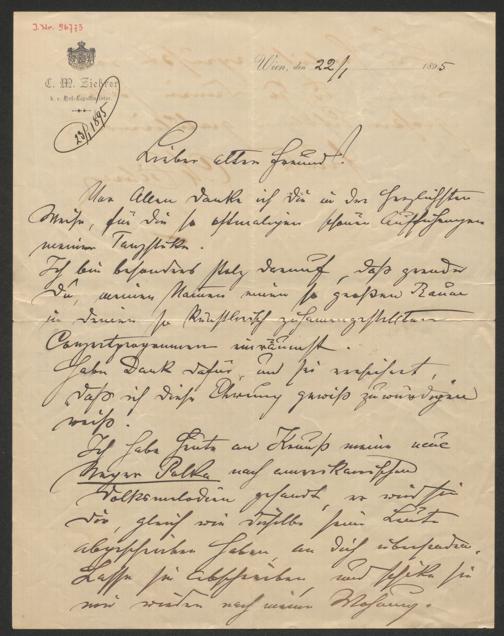 J. Nr. 56773
C. M. Ziehrer
k. u. k. Hof-Capellmeister.
Wien, den 22/1 1895
23/1 1895
Lieber alter Freund!
Vor Allem danke ich Dir in der herzlichsten
Weise, für die so oftmaligen schönen Aufführungen
meiner Tanzstücke.
Ich bin besonders stolz darauf, daß gerade
Du, meinem Namen einen so großen Raum
in Deinen so künstlerisch zusammengestellten
Concertprogrammen einräumst.
Habe Dank dafür, und sei versichert,
daß ich diese Ehrung gewiß zu würdigen
weiß.
Ich habe heute an Krauß meine neue
Neger Polka nach amerikanischen
Volksmelodien gesandt, er wird sie
Dir, gleich wie dieselbe seine Leute
abgeschrieben haben, an dich übersenden.
Lasse sie abschreiben, und schike sie
mir wieder nach meine Wohnung.